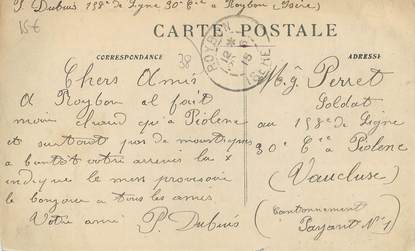 P. Dubuis 158e de Lgne 30e Cie à Roybon (Isère)
15€
CARTE POSTALE
CORRESPONDANCE
ADRESSE
38
ROYBON
ISERE
12
15
Chers Amis
A Roybon il fait
moin chaud qu'à Piolenc
et surtout pas de moustiques
a bientot votre la
indique le mess provisoire
le bonjour a tous les amis
Votre ami P. Dubuis
Mr J. Perret
Soldat
au 158e de Ligne
30e Cie à Piolenc
(Vaucluse)
(Cantonnement
Payant No 1)